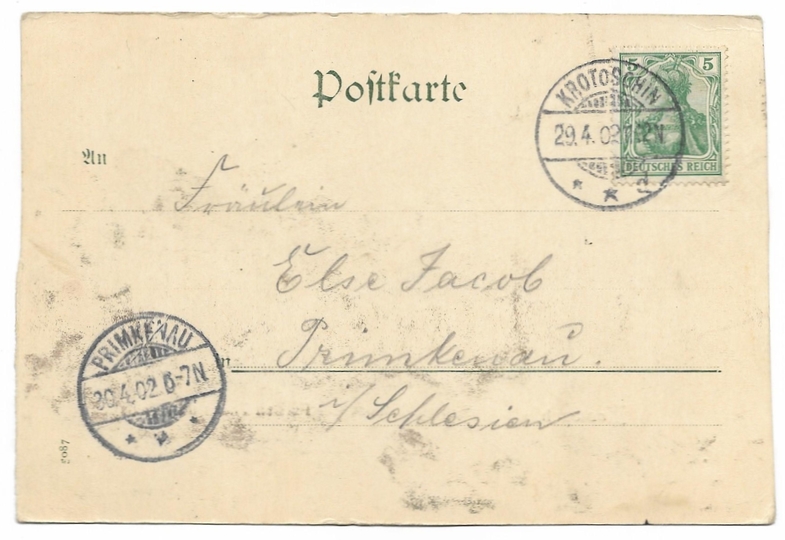 Postkarte
5 5
KROTOSCHIN
29.4.02
DEUTSCHES REICH
An
Fräulein
Else Jacob
in Primkenau.
i/Schlesien
PRIMKENAU
29.4.02 6-7N
2087